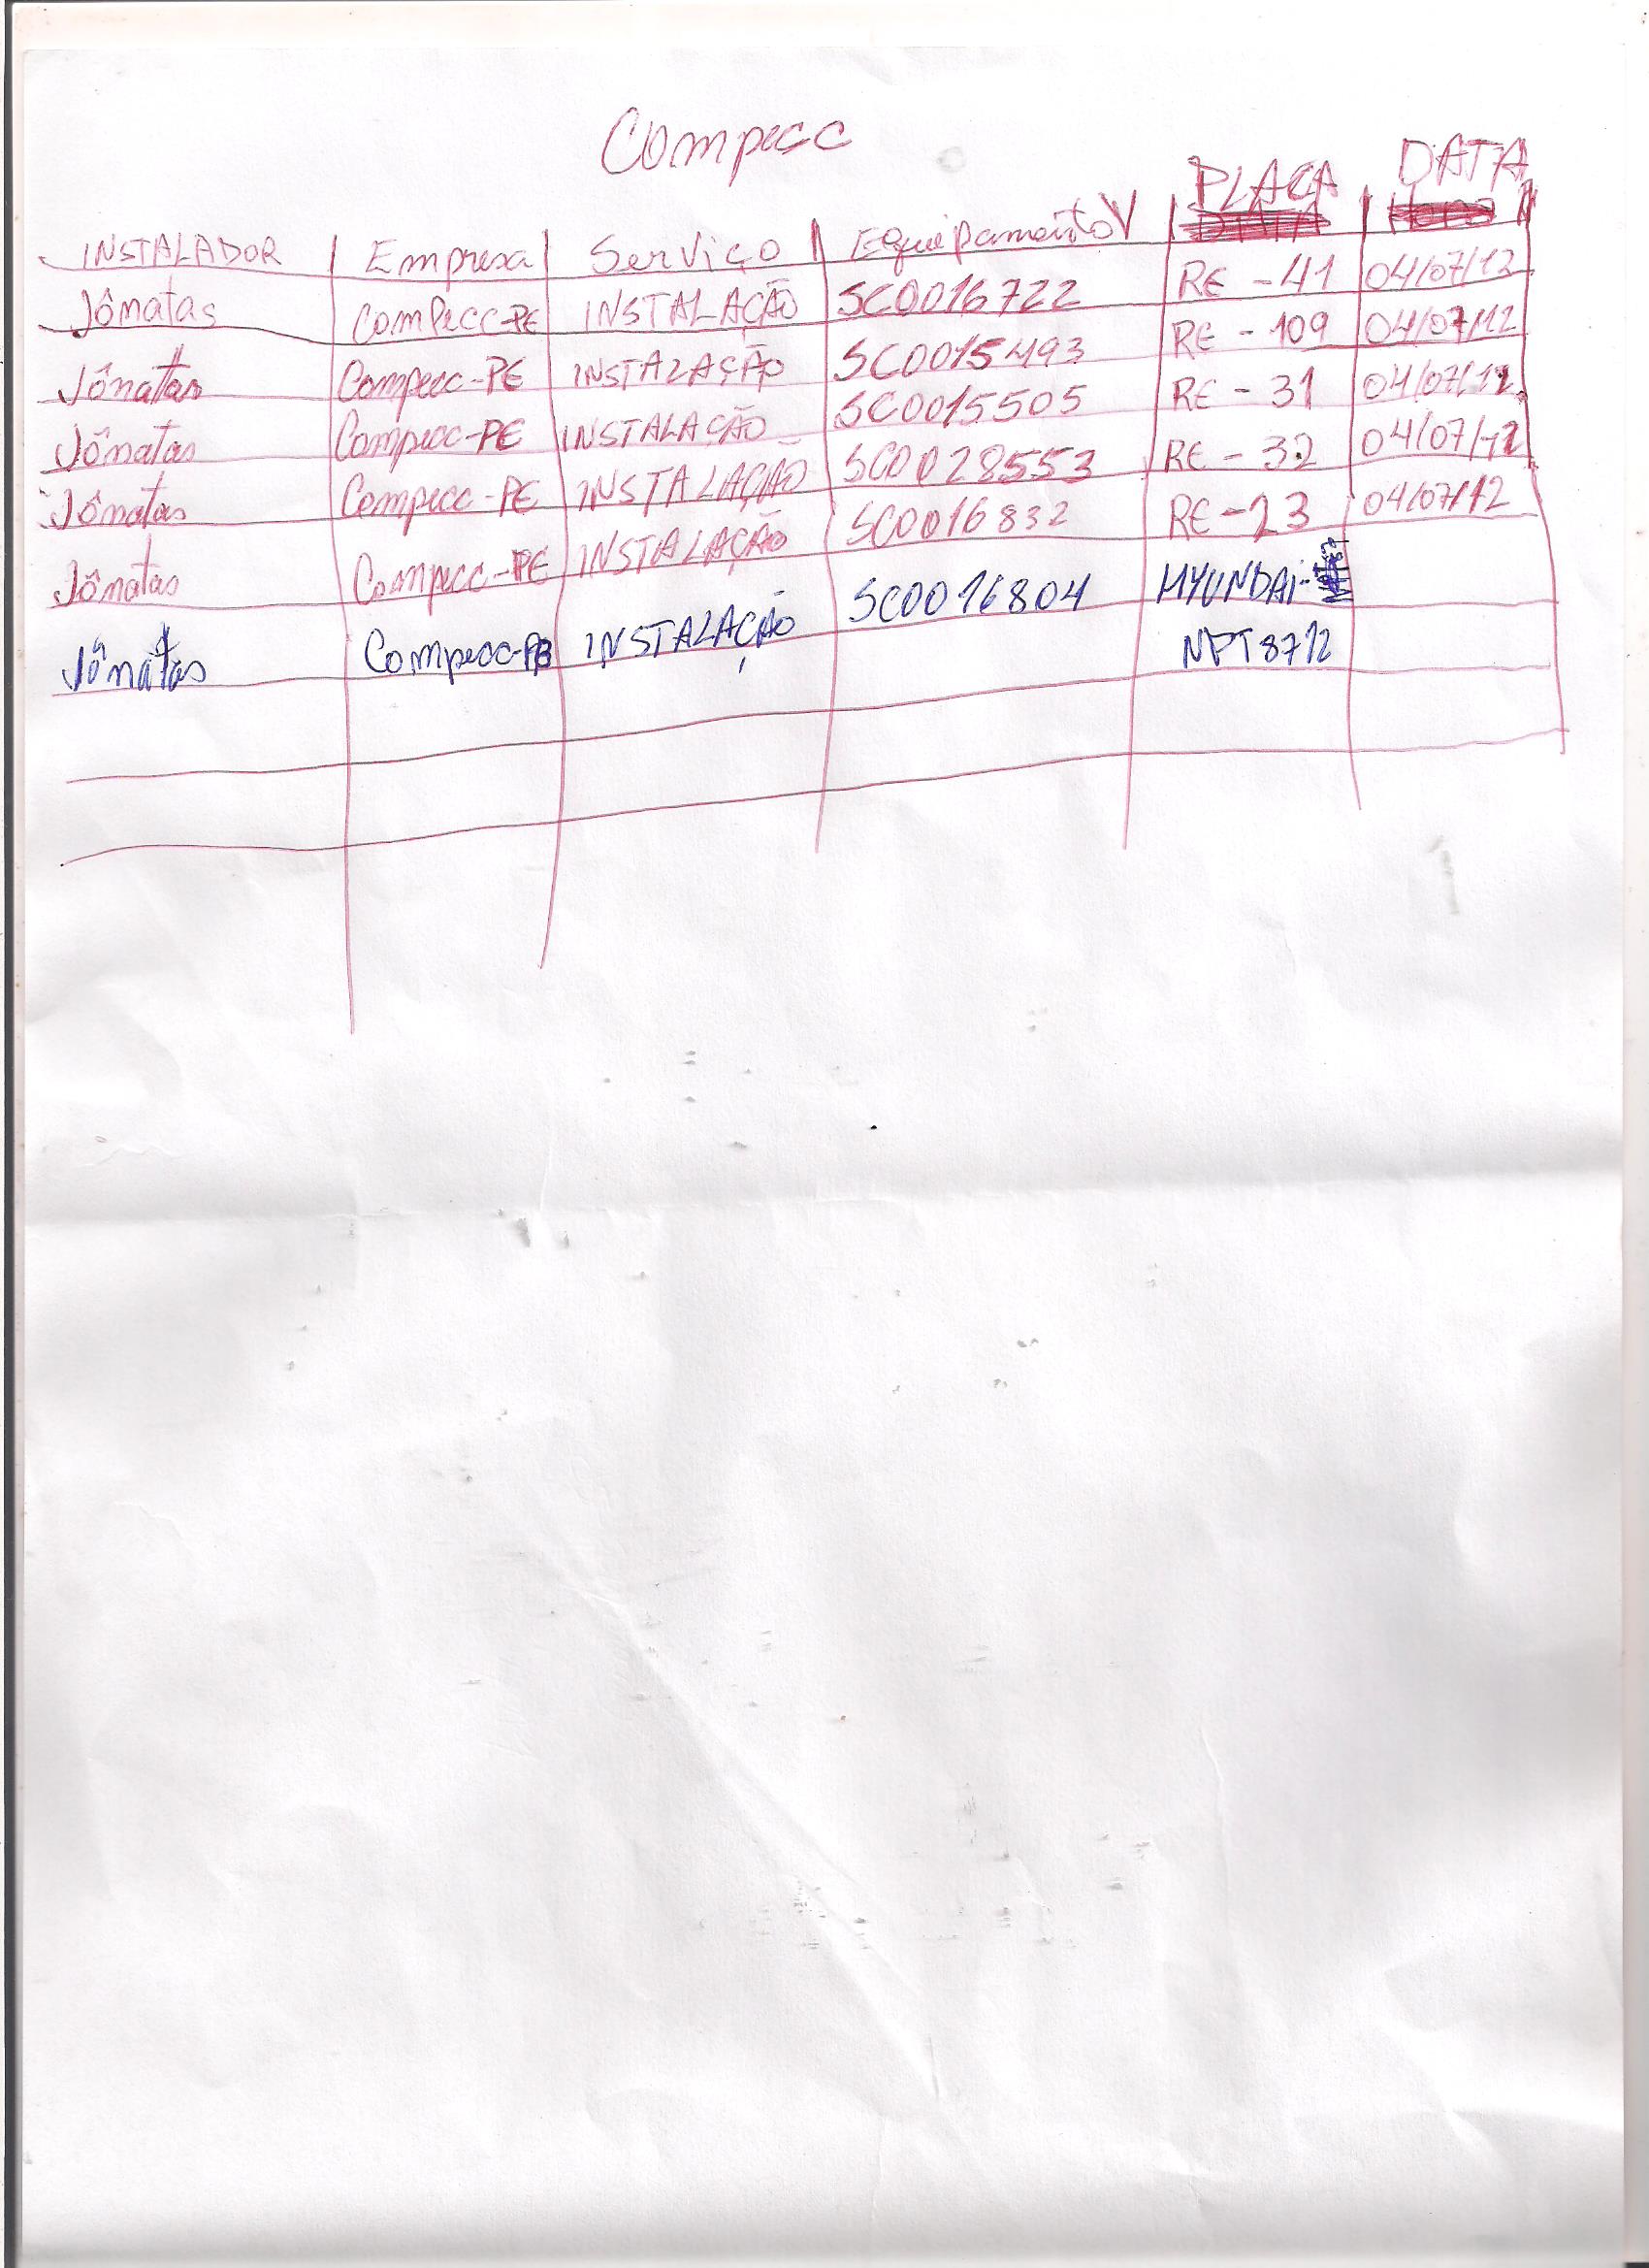 Compecc
INSTALADOR Empresa Serviço Equipamento PLACA DATA
Jônatas Compecc-PE INSTALAÇÃO SC0016722 RE-41 04/07/12
Jônatas Compecc-PE INSTALAÇÃO SC0015493 RE-109 04/07/12
Jônatas Compecc-PE INSTALAÇÃO SC0015505 RE-31 04/07/12
Jônatas Compecc-PE INSTALAÇÃO SC0028553 RE-32 04/07/12
Jônatas Compecc-PE INSTALAÇÃO SC0016832 RE-23 04/07/12
Jônatas Compecc-PB INSTALAÇÃO SC0016804 HYUNDAI-
NPT8712